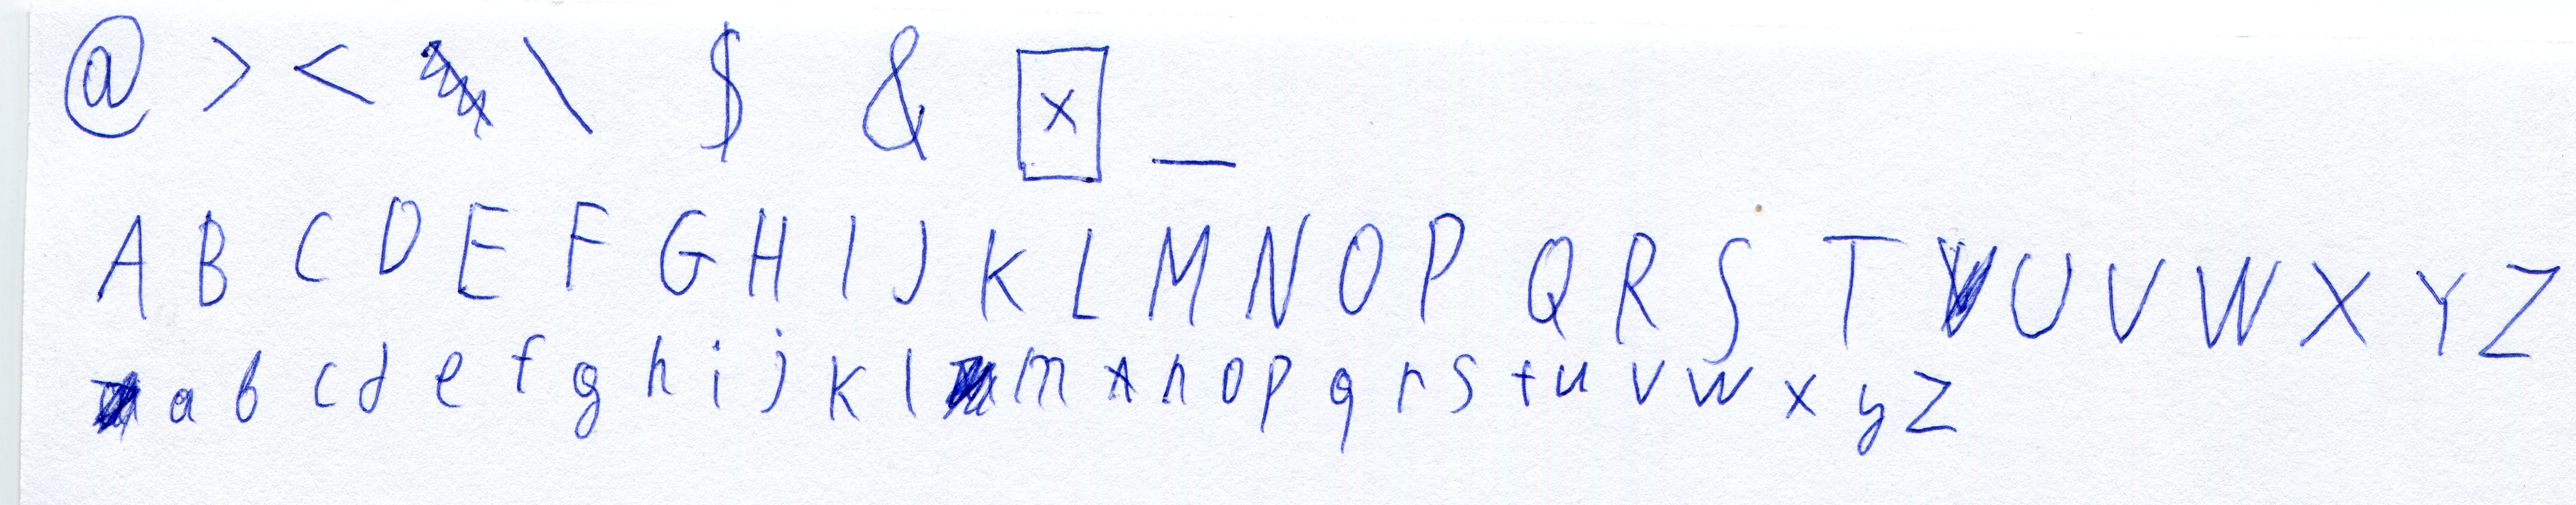 @ > < \ $ & ☒ _
A B C D E F G H I J K L M N O P Q R S T U V W X Y Z
a b c d e f g h i j k l m n o p q r s t u v w x y z